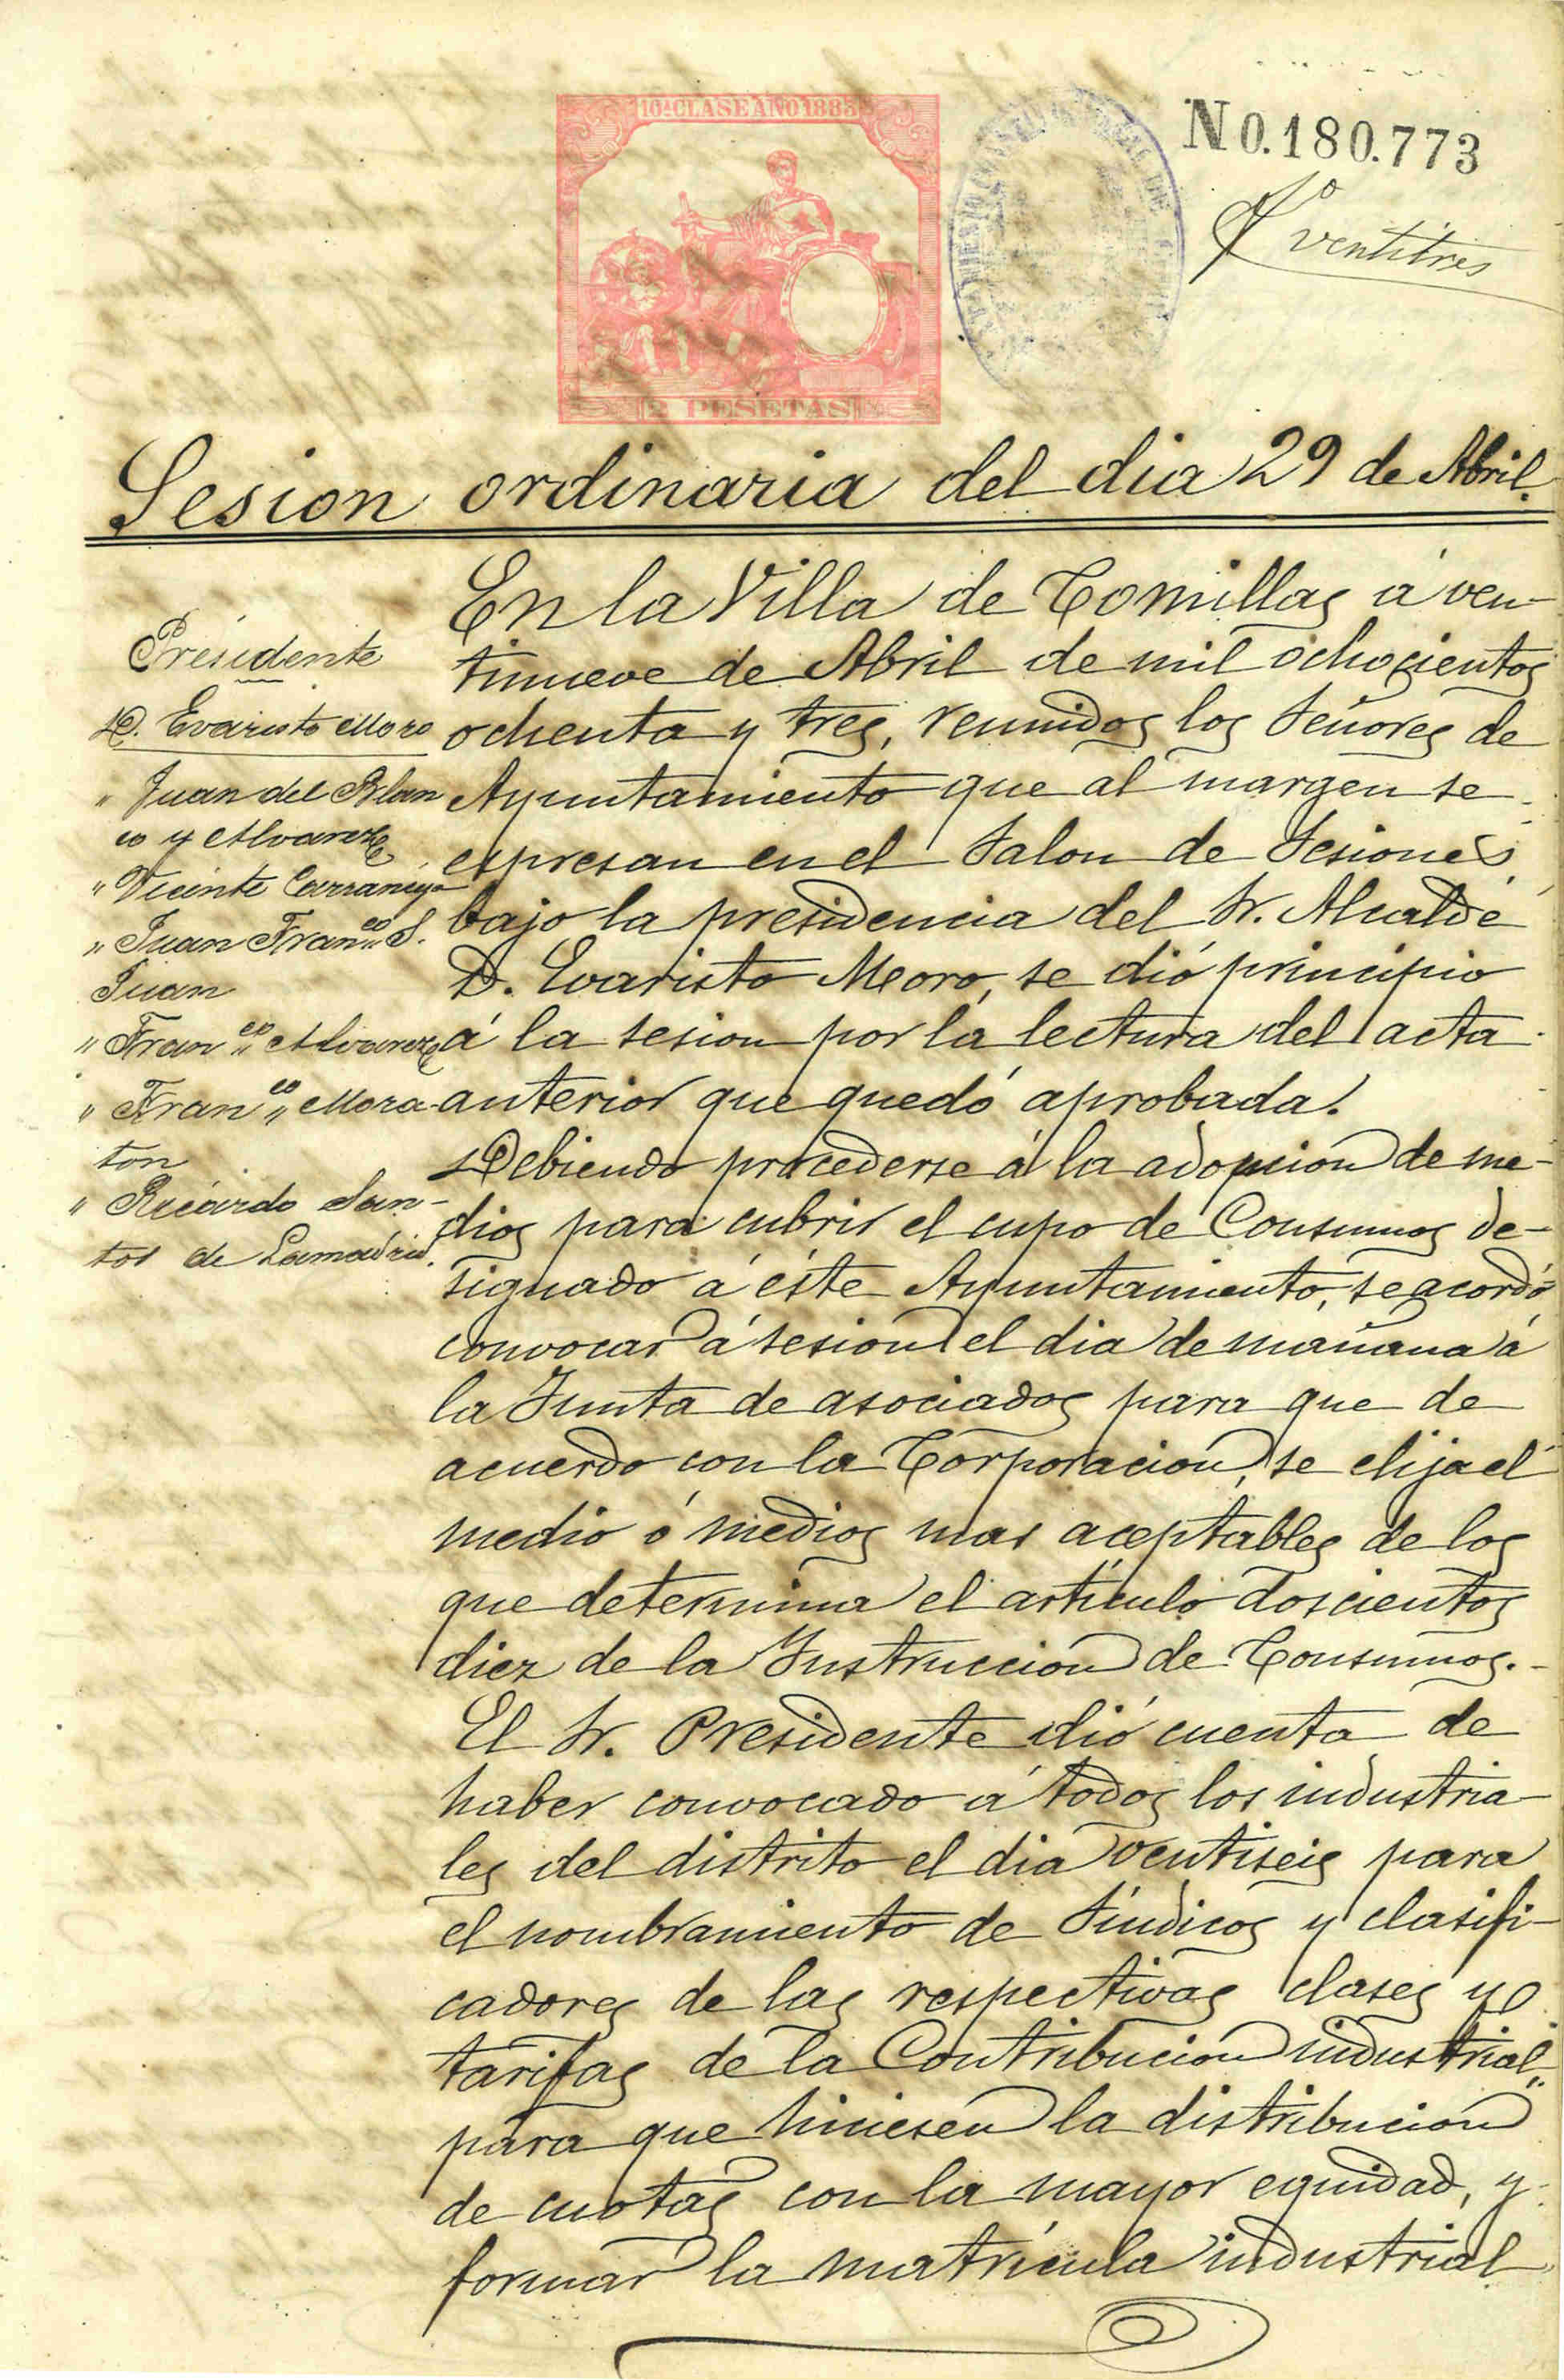 10ª CLASE AÑO 1883
2 PESETAS
N 0.180.773
Fº ventitres
Sesion ordinaria del dia 29 de Abril.
Presidente
D. Evaristo Moro
" Juan del Blan
co y Alvarez
" Vicente Carranceja
" Juan Franco S.
Juan
" Franco Alvarez
" Franco Mora
ton
" Ricardo San-
tos de Lamadrid.
En la Villa de Comillas á ven-
tinueve de Abril de mil ochocientos
ochenta y tres, reunidos los Señores de
Ayuntamiento que al margen se
espresan en el Salon de Sesiones
bajo la presidencia del Sr. Alcalde
D. Evaristo Moro, se dió principio
á la sesion por la lectura del acta
anterior que quedó aprobada.
Debiendo procederse á la adopcion de me-
dios para cubrir el cupo de Consumos de-
signado á éste Ayuntamiento, se acordó
convocar á sesion el dia de mañana á
la Junta de asociados para que de
acuerdo con la Corporacion, se elija el
medio ó medios mas aceptables de los
que determina el artículo doscientos
diez de la Instruccion de Consumos.-
El Sr. Presidente dió cuenta de
haber convocado á todos los industria-
les del distrito el dia ventiseis para
el nombramiento de Síndicos y clasifi-
cadores de las respectivas clases y
tarifas de la Contribucion industrial,
para que hiciesen la distribucion
de cuotas con la mayor equidad, y
formar la matrícula industrial